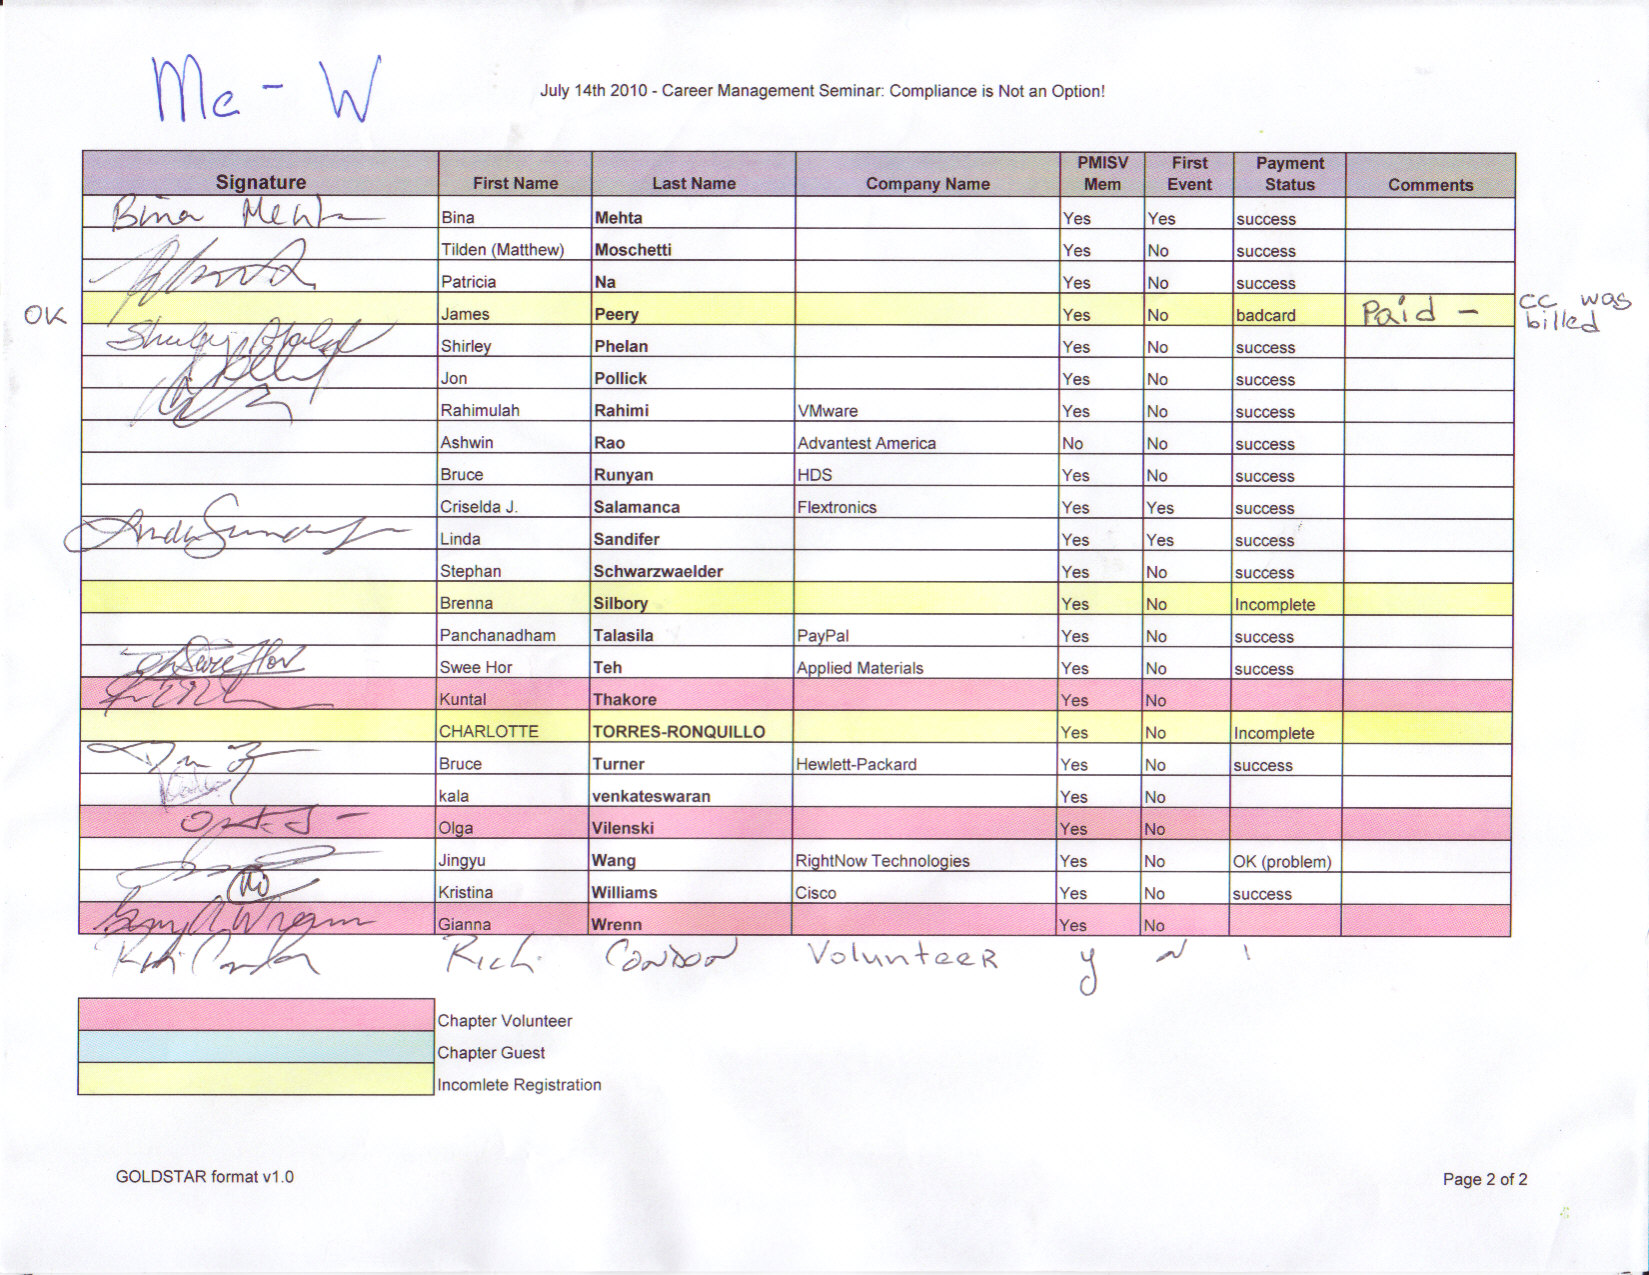 Me - W
July 14th 2010 - Career Management Seminar: Compliance is Not an Option!
Signature First Name Last Name Company Name PMISV Mem First Event Payment Status Comments
Bina Mehta Bina Mehta Yes Yes success
Tilden (Matthew) Moschetti Yes No success
Patricia Na Yes No success
OK James Peery Yes No badcard Paid - cc was billed
Shirley Phelan Shirley Phelan Yes No success
Jon Pollick Yes No success
Rahimulah Rahimi VMware Yes No success
Ashwin Rao Advantest America No No success
Bruce Runyan HDS Yes No success
Criselda J. Salamanca Flextronics Yes Yes success
Linda Sandifer Yes Yes success
Stephan Schwarzwaelder Yes No success
Brenna Silbory Yes No Incomplete
Panchanadham Talasila PayPal Yes No success
Swee Hor Swee Hor Teh Applied Materials Yes No success
Kuntal Thakore Yes No
CHARLOTTE TORRES-RONQUILLO Yes No Incomplete
Bruce Turner Hewlett-Packard Yes No success
kala venkateswaran Yes No
Olga Vilenski Yes No
Jingyu Wang RightNow Technologies Yes No OK (problem)
Kristina Williams Cisco Yes No success
Gianna Wrenn Yes No
Rich Condon Volunteer y N
Chapter Volunteer
Chapter Guest
Incomlete Registration
GOLDSTAR format v1.0
Page 2 of 2